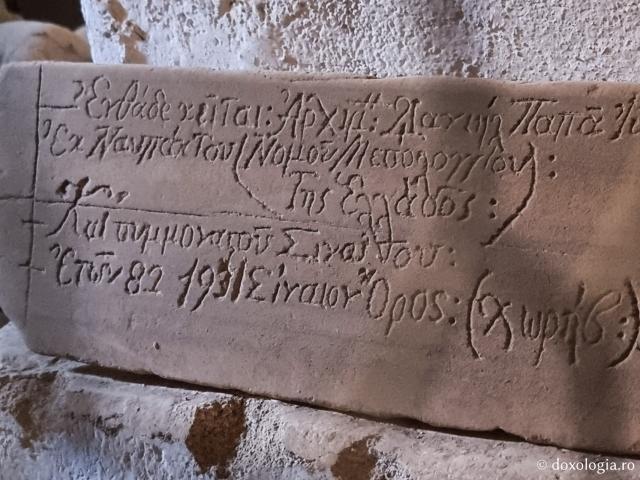 Ἐνθάδε κεῖται: Ἀρχιμ: Δανιήλ Παπᾶ
Ἐκ Ναυπάκτου (Νομοῦ Μεσολογγίου):
Τῆς Ἑλλάδος:
Καί συμμοναχοῦ Σιναΐτου:
Ἐτῶν 82 1931 Σίναιον Ὄρος: (Χωρήβ:)
© doxologia.ro